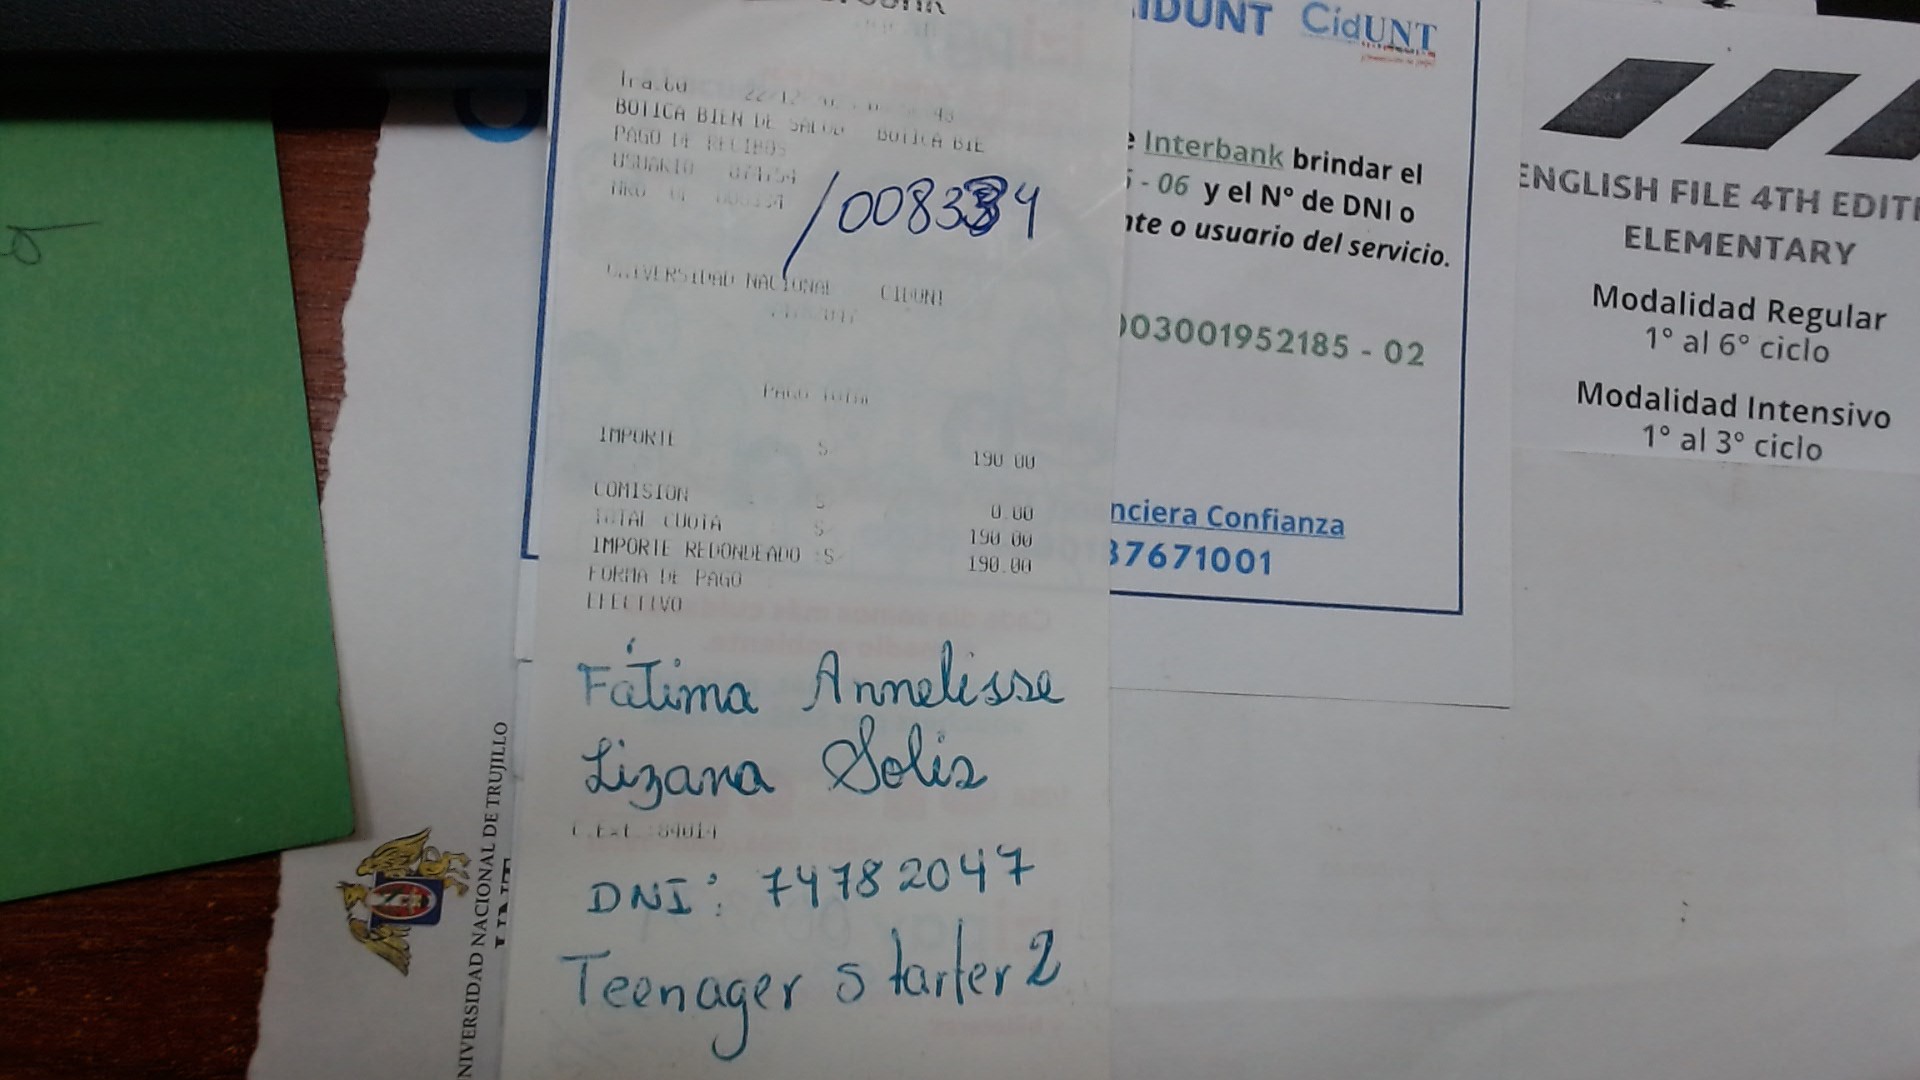 BOTICA BIEN DE SALUD BOTICA BIE
PAGO DE RECIBOS
USUARIO
NRO
/008334
UNIVERSIDAD NACIONAL CIDUNT
PAGO TOTAL
IMPORTE S/ 190.00
COMISION S/ 0.00
TOTAL CUOTA S/ 190.00
IMPORTE REDONDEADO S/ 190.00
FORMA DE PAGO
EFECTIVO
Fátima Annelisse
Lizana Solis
C.Ext.:84014
DNI: 74782047
Teenager starter 2
IDUNT CidUNT
e Interbank brindar el
5 - 06 y el N° de DNI o
nte o usuario del servicio.
003001952185 - 02
nciera Confianza
37671001
ENGLISH FILE 4TH EDITI
ELEMENTARY
Modalidad Regular
1° al 6° ciclo
Modalidad Intensivo
1° al 3° ciclo
NIVERSIDAD NACIONAL DE TRUJILLO